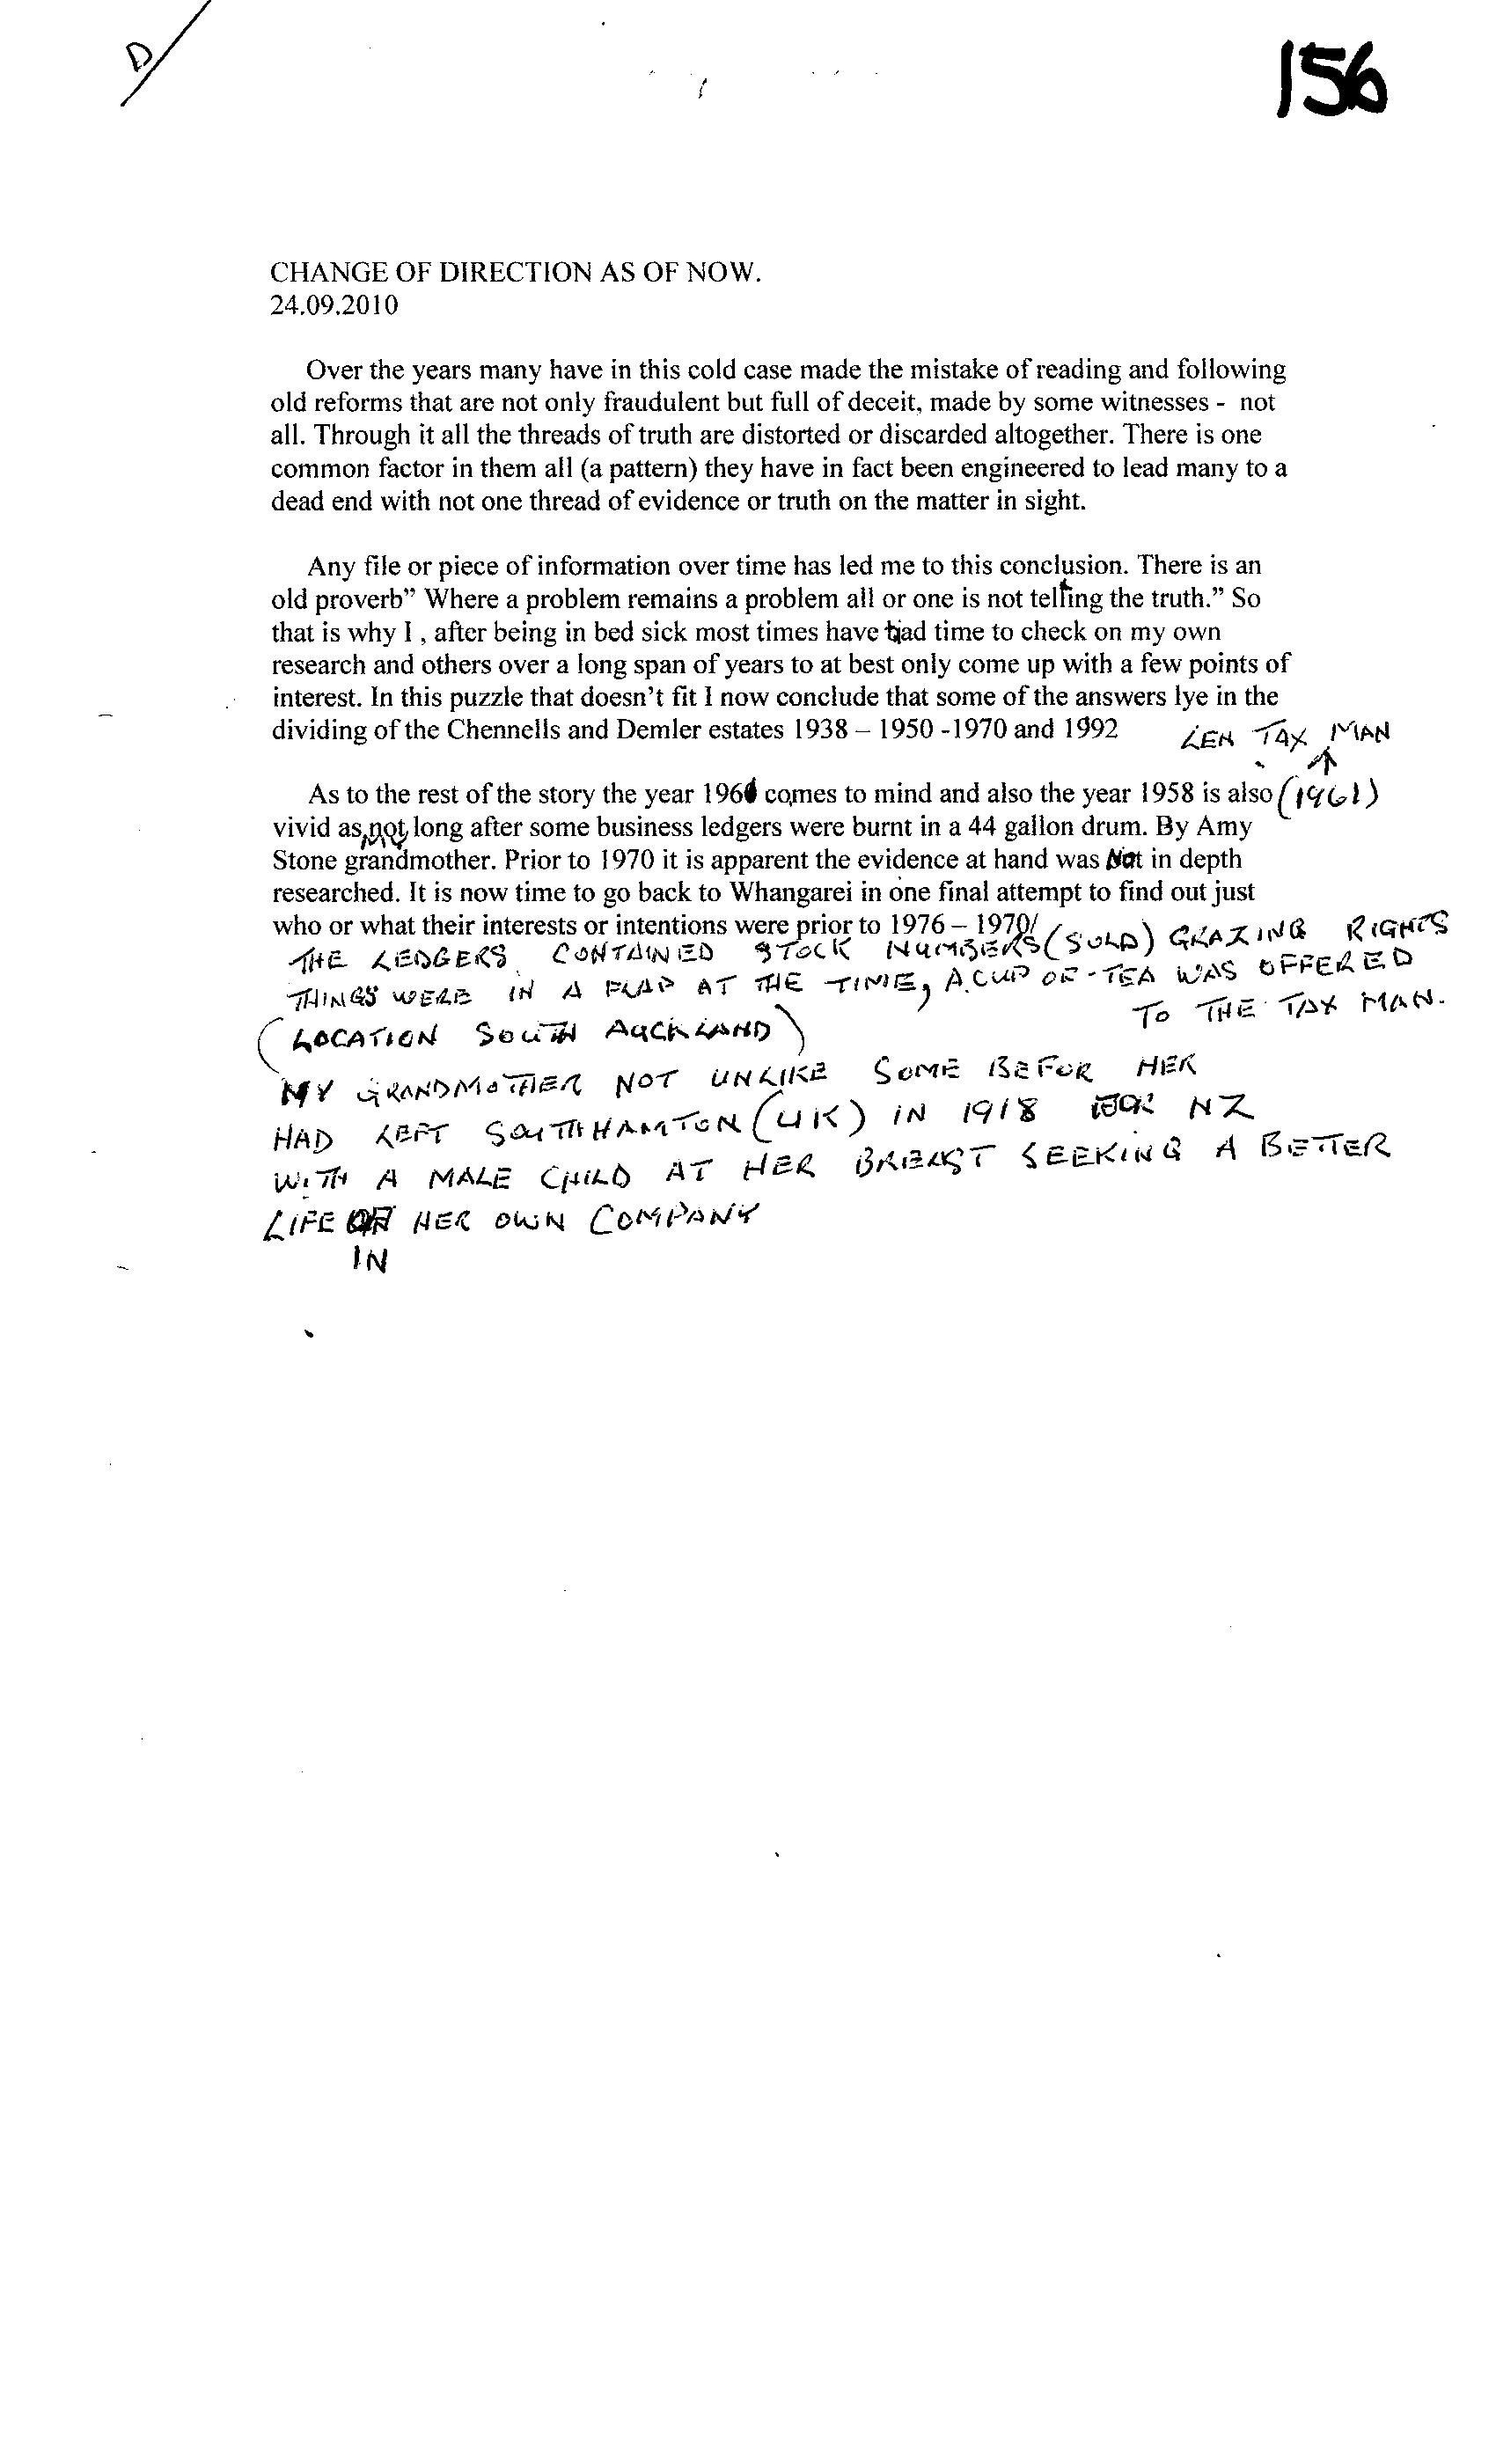 D/
156
CHANGE OF DIRECTION AS OF NOW.
24.09.2010
Over the years many have in this cold case made the mistake of reading and following
old reforms that are not only fraudulent but full of deceit, made by some witnesses - not
all. Through it all the threads of truth are distorted or discarded altogether. There is one
common factor in them all (a pattern) they have in fact been engineered to lead many to a
dead end with not one thread of evidence or truth on the matter in sight.
Any file or piece of information over time has led me to this conclusion. There is an
old proverb” Where a problem remains a problem all or one is not telling the truth.” So
that is why I , after being in bed sick most times have had time to check on my own
research and others over a long span of years to at best only come up with a few points of
interest. In this puzzle that doesn’t fit I now conclude that some of the answers lye in the
dividing of the Chennells and Demler estates 1938 – 1950 -1970 and 1992 LEN TAX MAN
As to the rest of the story the year 196 comes to mind and also the year 1958 is also (1961)
vivid as, not long after some business ledgers were burnt in a 44 gallon drum. By Amy
MY
Stone grandmother. Prior to 1970 it is apparent the evidence at hand was Not in depth
researched. It is now time to go back to Whangarei in one final attempt to find out just
who or what their interests or intentions were prior to 1976 – 1970/
THE LEDGERS CONTAINED STOCK NUMBERS (SOLD) GRAZING RIGHTS
THINGS WERE IN A FLAP AT THE TIME, A CUP OF-TEA WAS OFFERED
TO THE TAX MAN.
(LOCATION SOUTH AUCKLAND)
MY GRANDMOTHER NOT UNLIKE SOME BEFOR HER
HAD LEFT SOUTHHAMTON (UK) IN 1918 FOR NZ
WITH A MALE CHILD AT HER BREAST SEEKING A BETTER
LIFE HER OWN COMPANY
IN